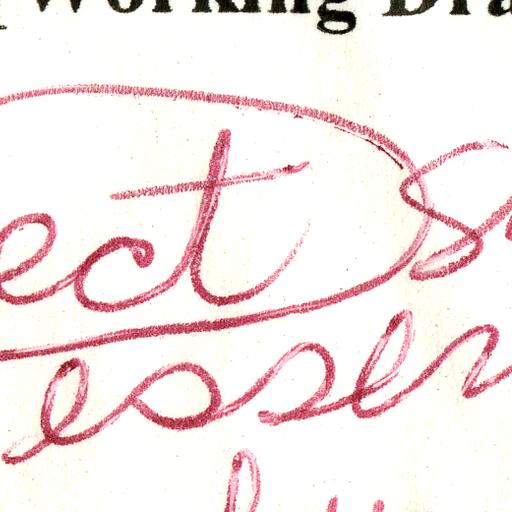 Working Dra
ect S
essen